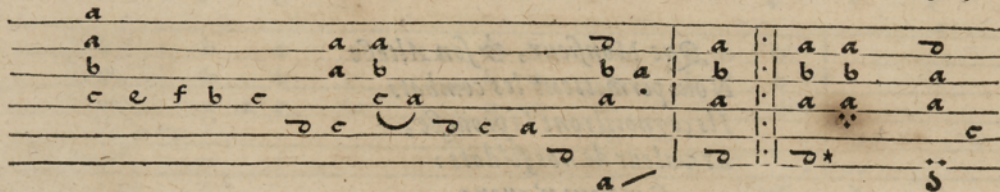 a
a a a d a a a d
b a b b a b b b a
c e f b c c a a a a a a
d c d c a c
d d d*
a